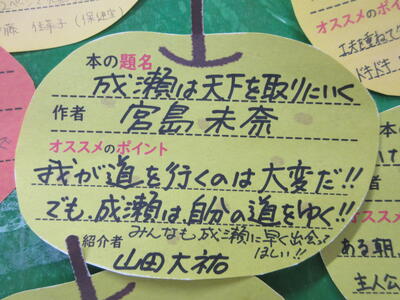 本の題名
成瀬は天下を取りにいく
作者
宮島未奈
オススメのポイント
我が道を行くのは大変だ!!
でも、成瀬は、自分の道をゆく!!
みんなも成瀬に早く出会って
ほしい!!
紹介者
山田大祐
オススメのポイ
工夫を重ねて
ドキドキ
本の
作者
オススメ
ある朝、
主人公